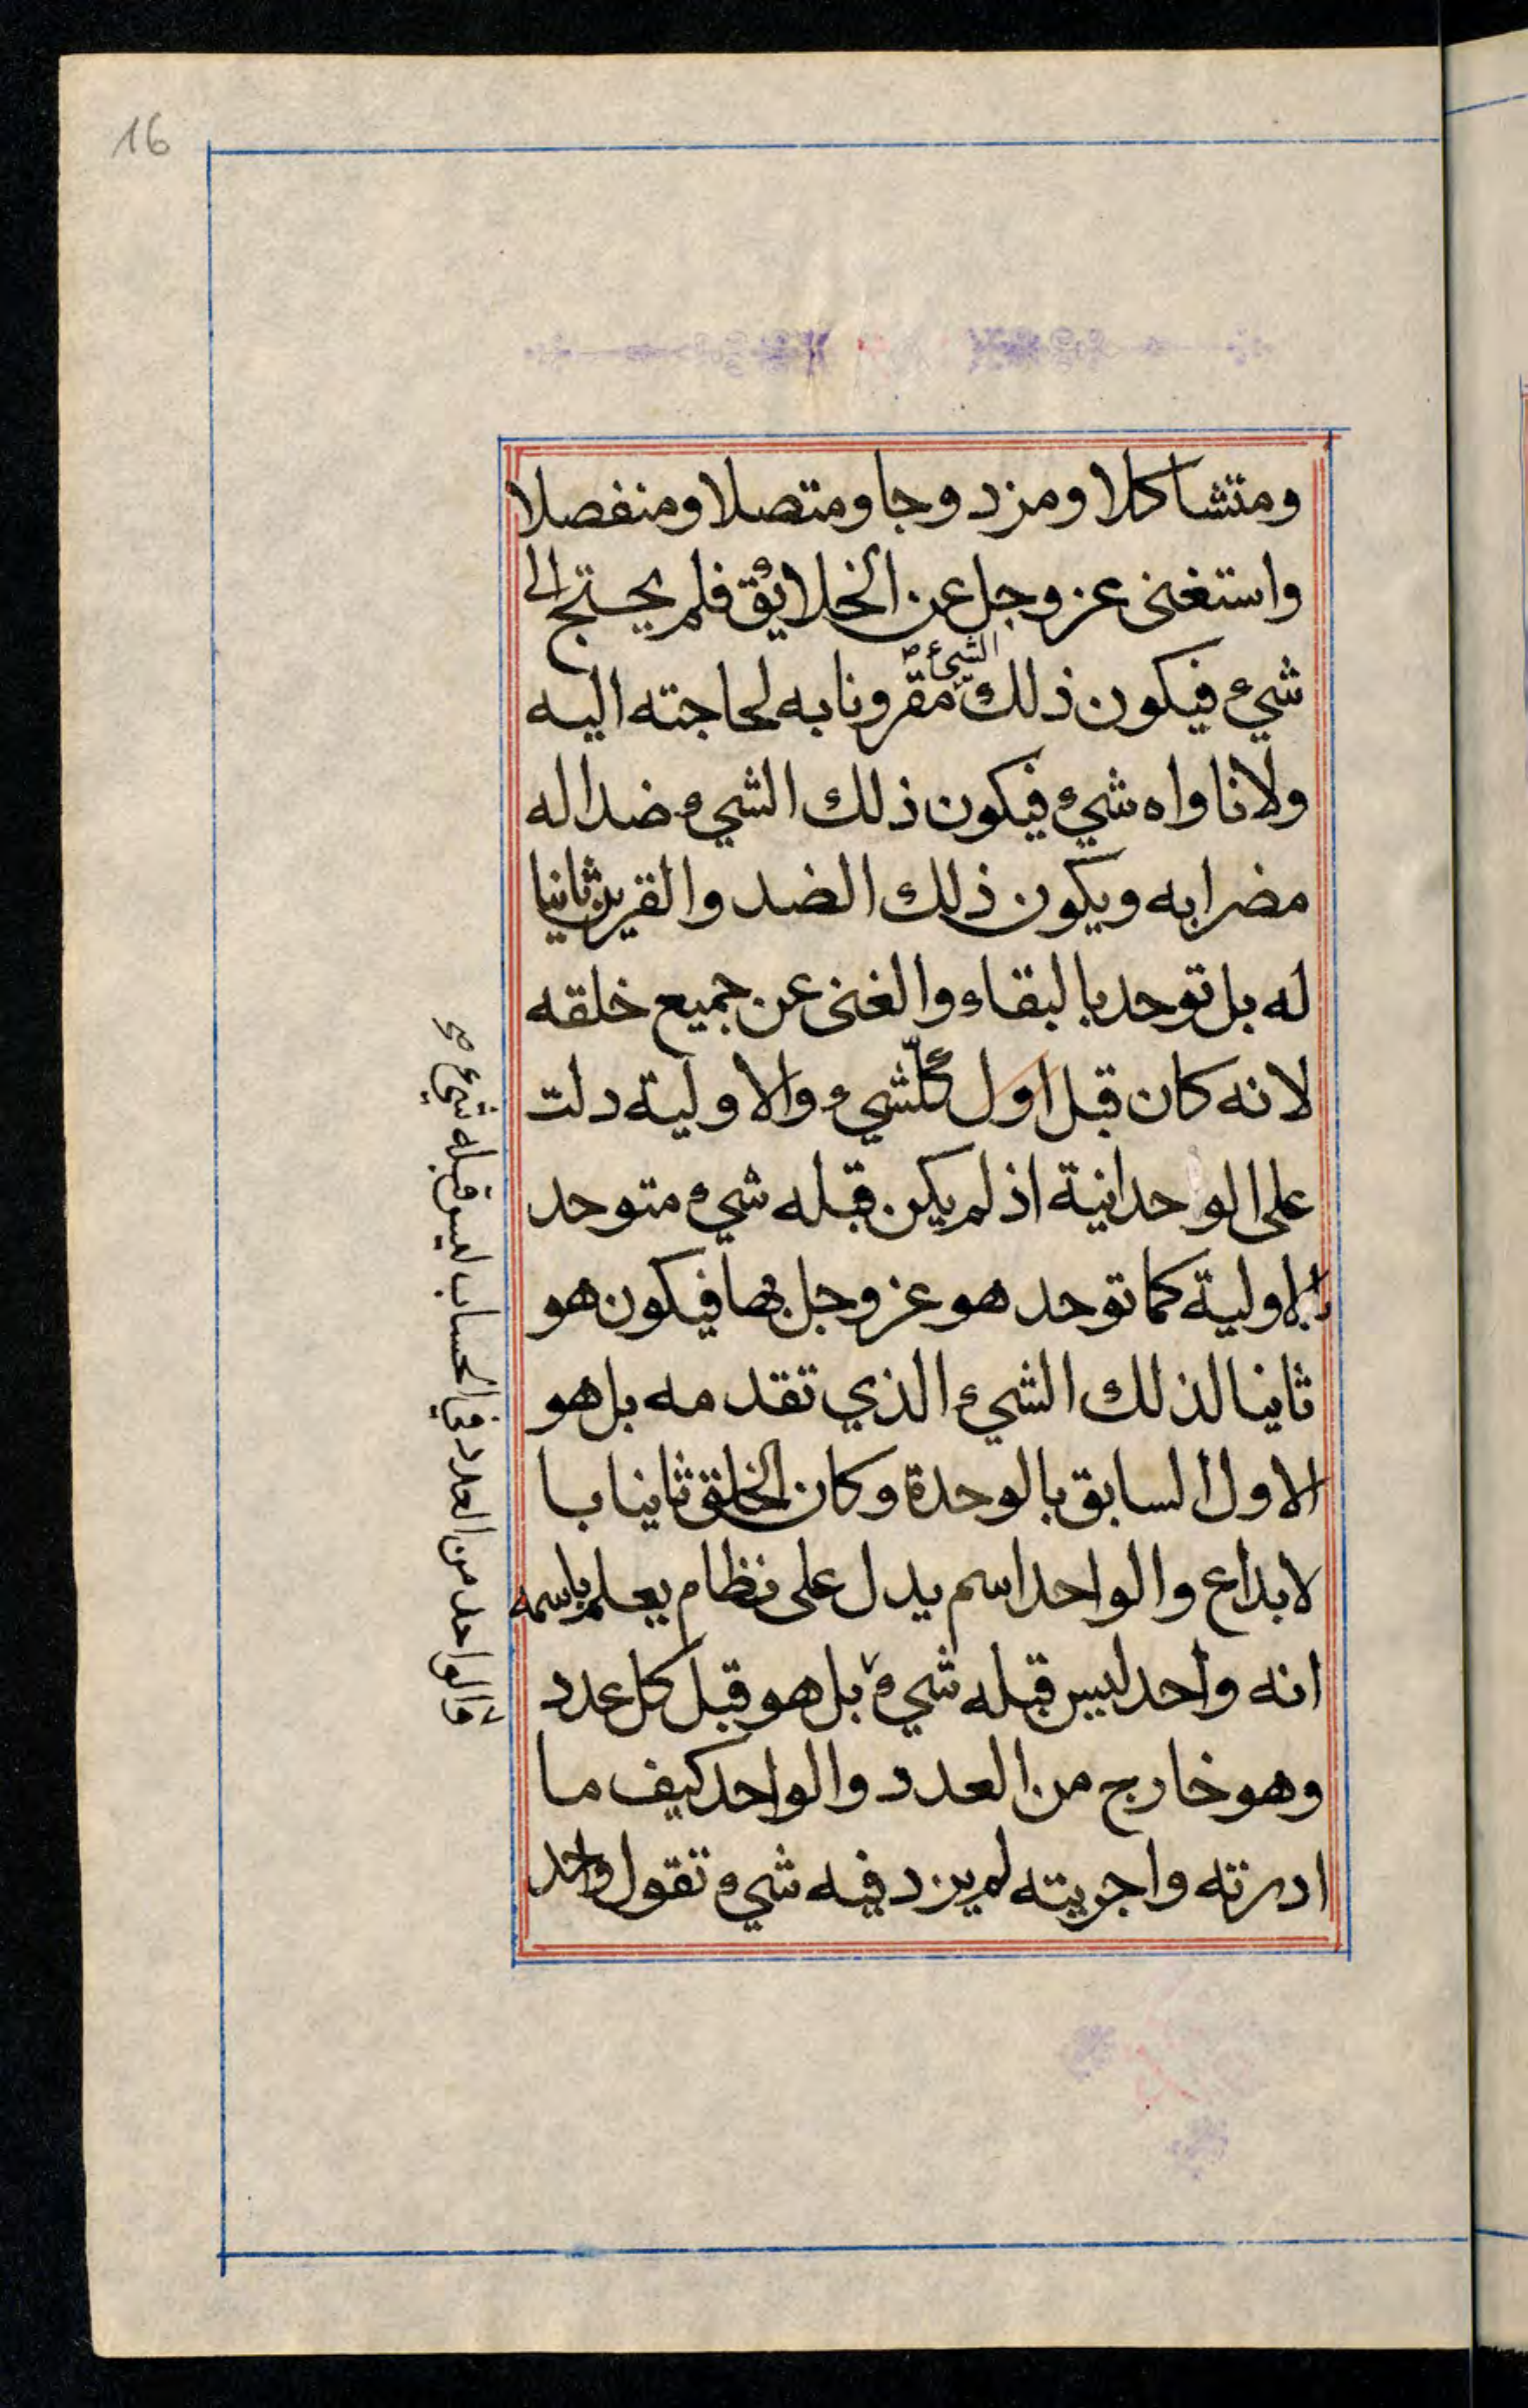 16
ومتشاكلا ومزدوجا ومتصلا ومنفصلا
واستغنى عز وجل عن الخلائق فلم يحتج الى
شيء فيكون ذلك الشيء مقرونا به لحاجته اليه
ولا ناواه شيء فيكون ذلك الشيء ضدا له
مضرا به ويكون ذلك الضد والقرين ثانيا
له بل توحد بالبقاء والغنى عن جميع خلقه
لانه كان قبل اول كلشيء والاولية دلت
على الواحدانية اذ لم يكن قبله شيء متوحد
بالاولية كما توحد هو عز وجل بها فيكون هو
ثانيا لذلك الشيء الذي تقدمه بل هو
الاول السابق بالوحدة وكان الخلق ثانيا با
لابداع والواحد اسم يدل على نظام يعلم باسمه
انه واحد ليس قبله شيء بل هو قبل كل عدد
وهو خارج من العدد والواحد كيف ما
ادرته واجريته لم يزد فيه شيء تقول واحد
والواحد من العدد في الحساب ليس قبله شيء صح